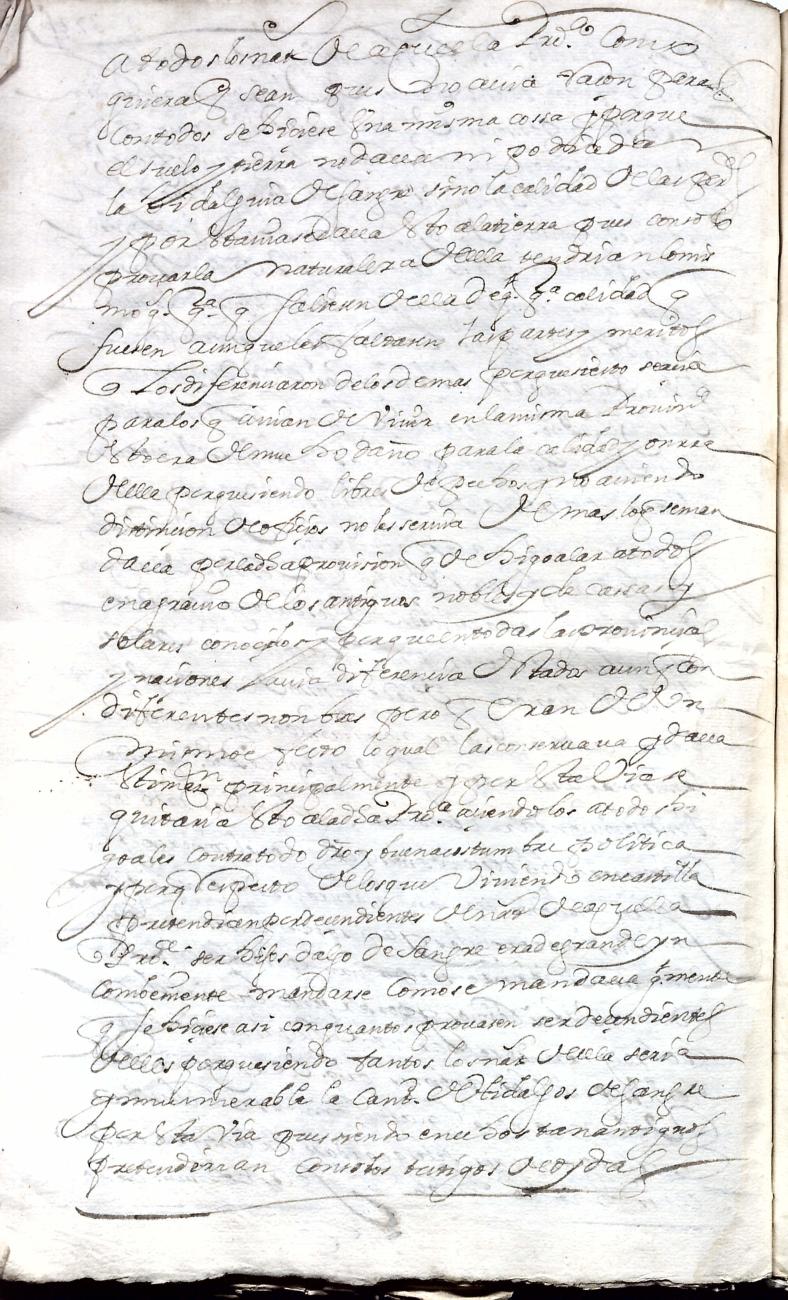 a todos los nat.es de aquella Prou.a como
quiera q sean pues no auia raçon para q
con todos se hiciese vna misma cossa y porque
el suelo y tierra no daua ni podia dar
la hidalguia de sangre sino la calidad de las per
y por esta uia se daua esto a la tierra pues con solo
prouar la naturaleza della tendrian lo mis
mo q.
saliesen della de q.l q.a calidad q
fuesen aunque les faltasen las partes y meritos
q los diferenciaron de los demas porque si esto seruia
para los q auian de viuir en la misma Prouin
esto era de mucho daño para la calidad y onrra
della porque siendo libres de pechos y no auiendo
distincion de oficios no les seruia de mas lo q se man
daua por la dha prouision q de higoalar a todos
en agrauio de los antiguos nobles y de cassas y
solares conocidos y porque en todas las prouincias
y naciones hauia diferencia de estados aunq con
diferentes nonbres pero q eran de un
mismo efecto lo qual las conseruaua y daua
estimon principalmente y por esta via se
quitaria esto a la dha Prou.a auiendolos a todos hi
goales contra todo dro y buena costumbre politica
y porq respecto de los que viuiendo en castilla
pretendian por decendientes de nat.es de aquella
Prou.a ser hijos dalgo de sangre era de grande yn
conbeniente mandarse como se mandaua g.mente
q se hiciese asi con quantos prouasen ser decendientes
dellos porque siendo tantos los nat.es della seria
ynnumerable la cant.d de hidalgos de sangre
por esta via pues siendo en echos tan antiguos
pretendirian con solos testigos de oydas